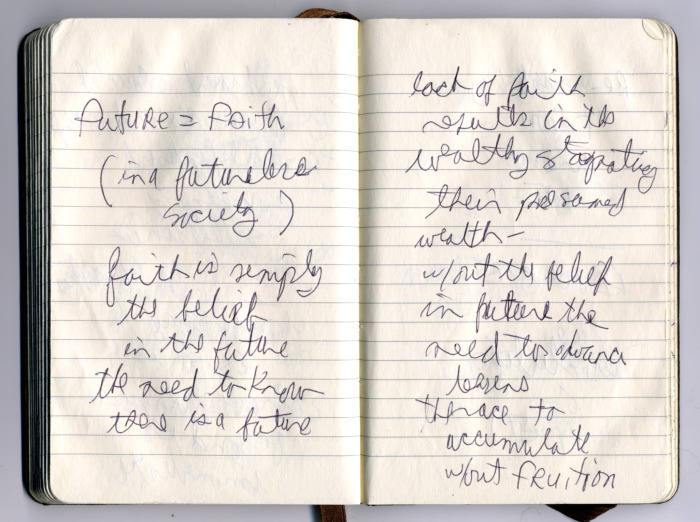 Future = Faith
(in a futureless
society)
faith is simply
the belief
in the future
the need to know
there is a future
lack of faith
results in the
wealthy stagnating
their presumed
wealth -
w/out the belief
in future the
need to advance
lessens
the race to
accumulate
w/out fruition